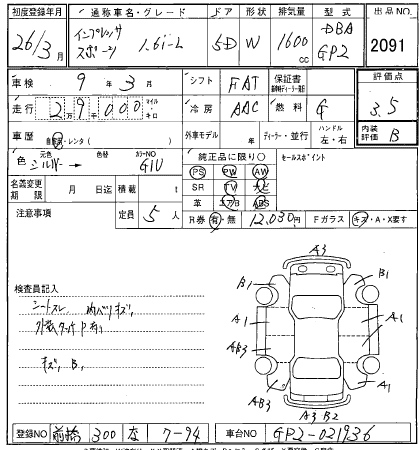 初度登録年月 通称車名・グレード ドア 形状 排気量 型式 出品NO
26/3月 インプレッサ スポーツ 1.6i-L 5D W 1600cc DBA GP2 2091
車検 9年 3月 シフト FAT 保証書 評価点
走行 2万9千000 マイル・キロ 冷房 AAC 燃料 G 3.5
車歴 自家用・レンタ( ) 外車モデル 年 ディーラー・並行 ハンドル 左・右 内装評価 B
色 元色 シルバー → 色替 カラーNO G1U 純正品に限り○ セールスポイント
PS PW AW
名義変更期限 月 日迄 積載 t SR TV ナビ
革 エアB ABS
注意事項 定員 5人 R券 有・無 12,030円 Fガラス キズ・A・X要す
検査員記入
シートスレ 内ハリキズ
外装タッチP有り
キズ B1
A3
B1 B1
A1 A1
AB3 A1
AB3 A1
A3 B2
登録NO 前橋 300 な 7-94 車台NO GP2-021936